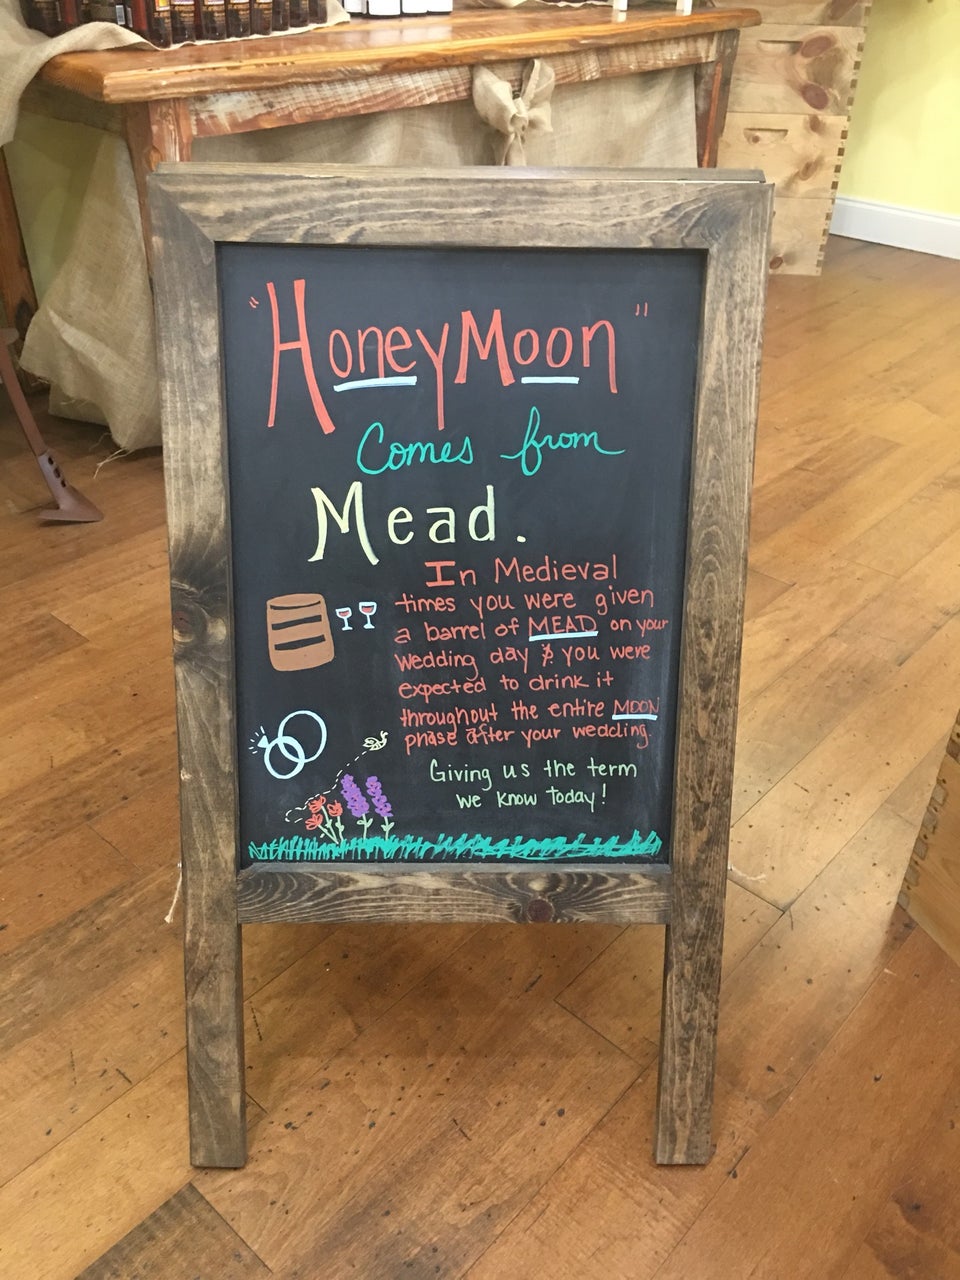 "HoneyMoon"
Comes from
Mead.
In Medieval
times you were given
a barrel of MEAD on your
wedding day & you were
expected to drink it
throughout the entire MOON
phase after your wedding.
Giving us the term
we know today!